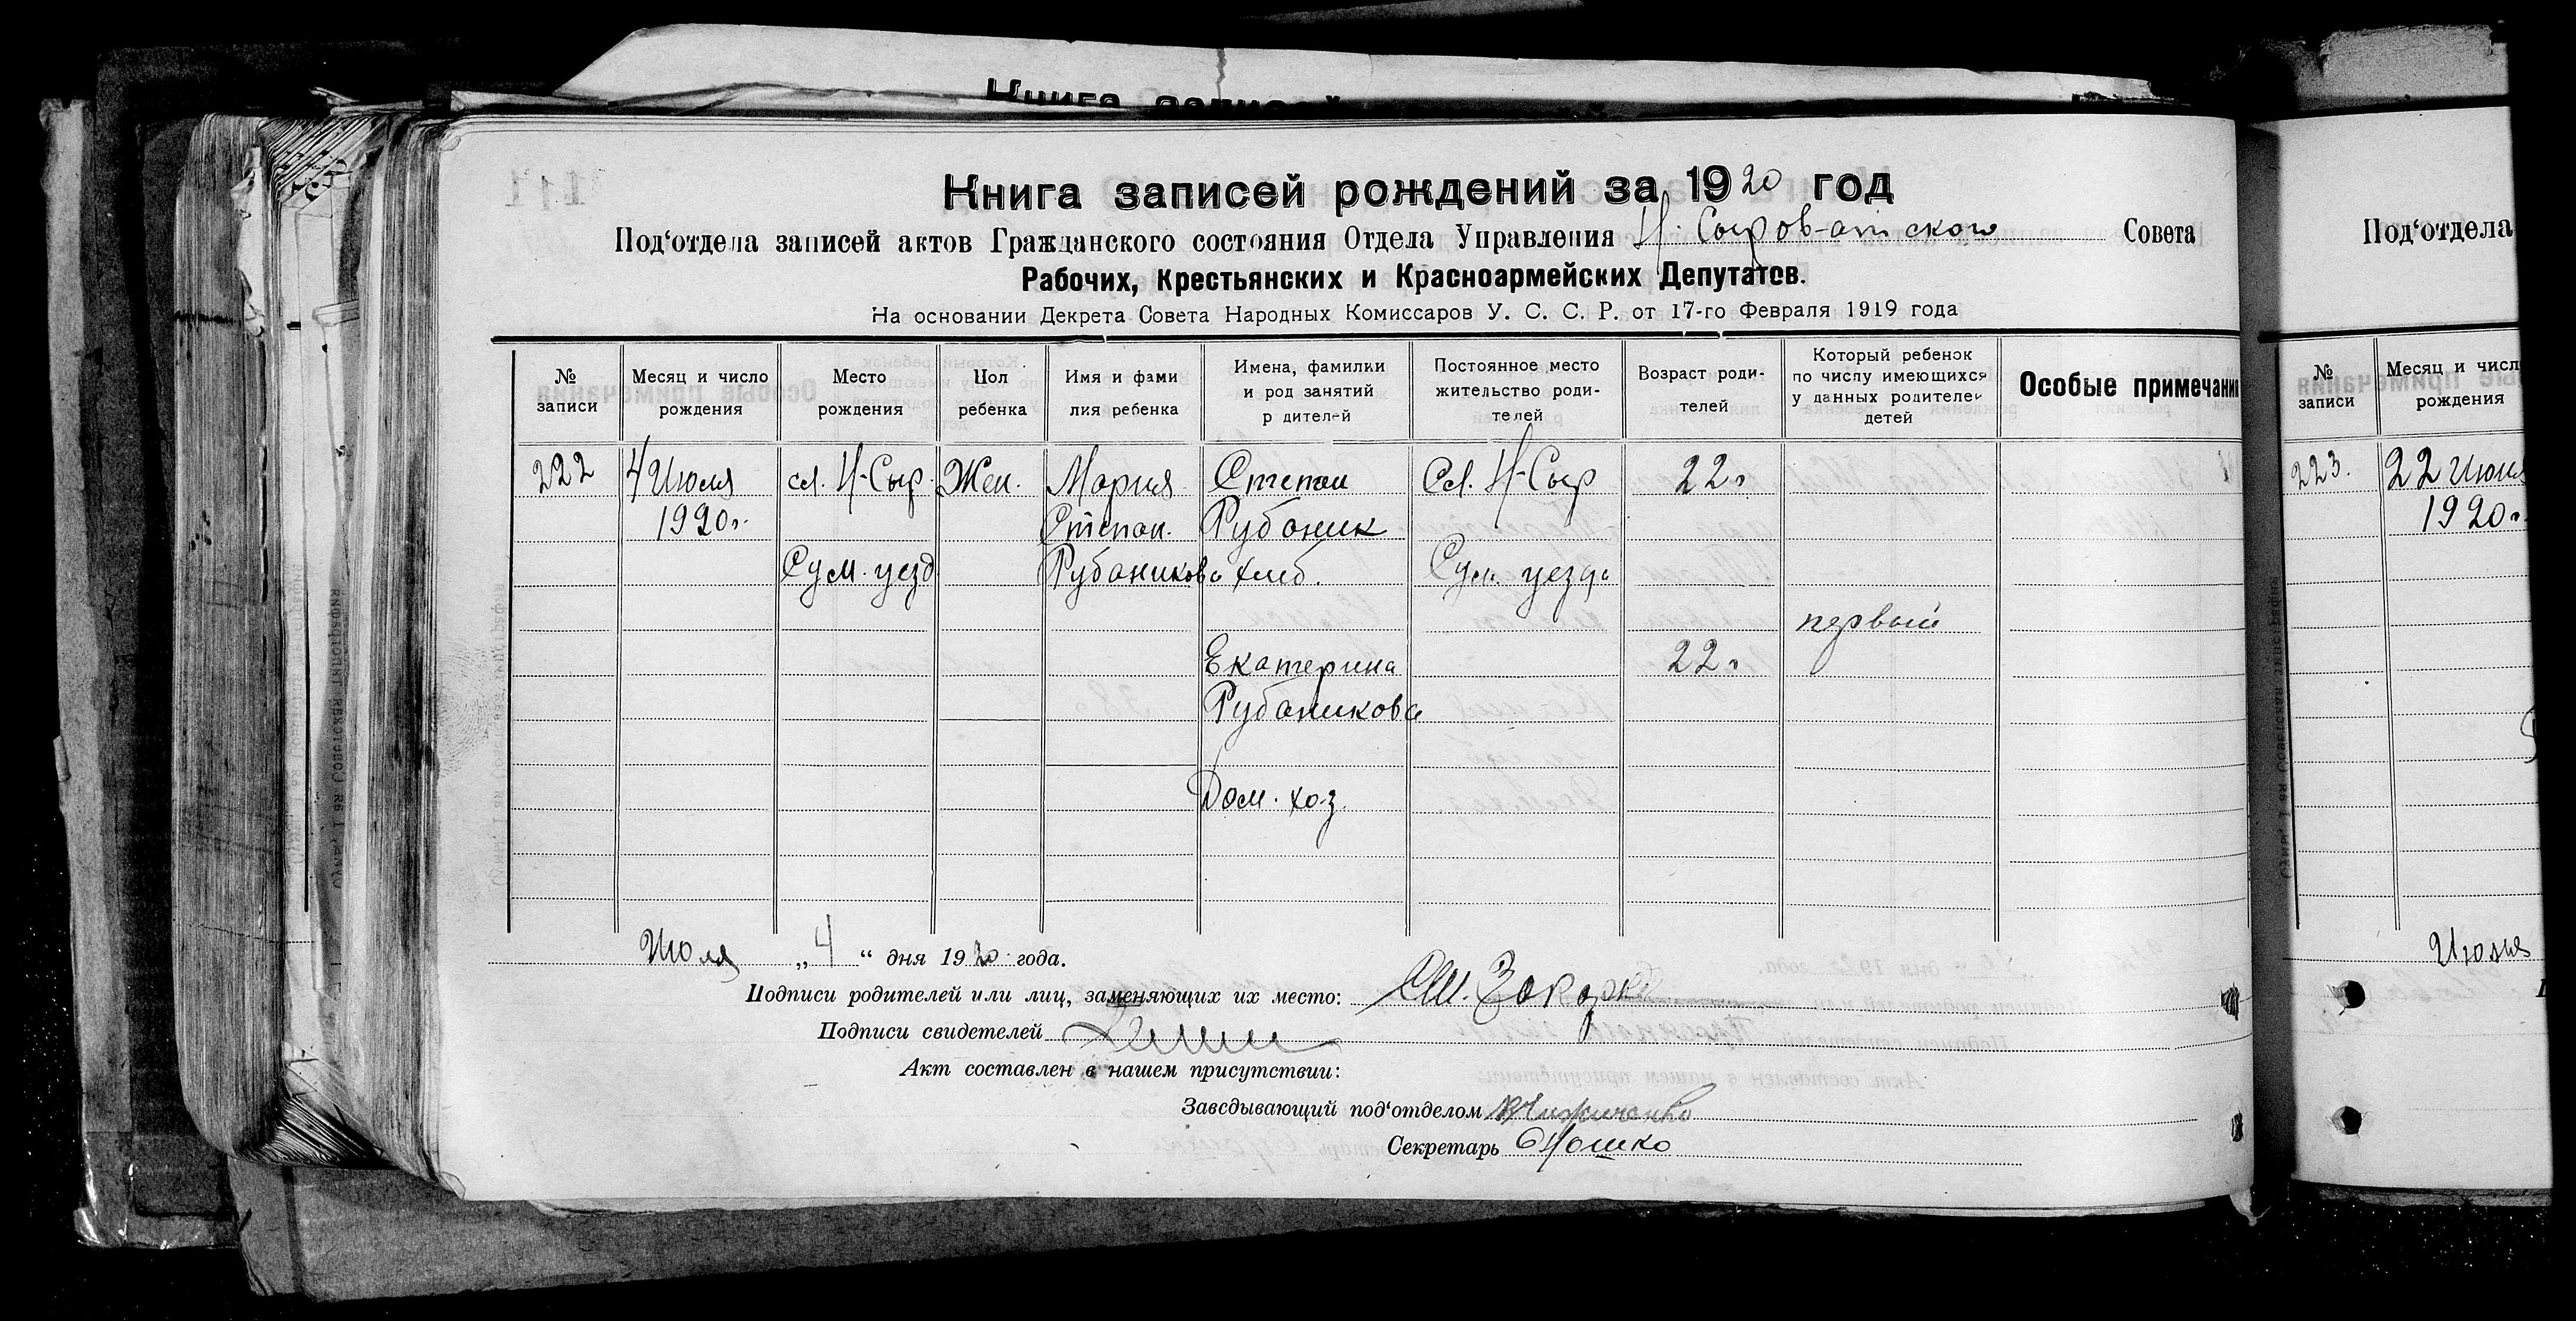 Книга записей
Книга записей рождений за 1920 год
Под‘отдела записей актов Гражданского состояния Отдела Управления Н. Сыроватского Совета
Рабочих, Крестьянских и Красноармейских Депутатов.
На основании Декрета Совета Народных Комиссаров У. С. С. Р. от 17-го Февраля 1919 года
№ записи
Месяц и число рождения
Место рождения
Пол ребенка
Имя и фами лия ребенка
Имена, фамилии и род занятий р дителей
Постоянное место жительство роди- телей
Возраст роди- телей
Который ребенок по числу имеющихся у данных родителей детей
Особые примечания
222 4 Июля сл. Н-Сыр. Жен. Мария Степан Сл. Н-Сыр 22 г.
1920 г. Степан. Рубаник
Сум. уезд Рубаникова хлеб. Сум. уезда
первый
Екатерина 22 г.
Рубаникова
Дом. хоз.
Июля „4“ дня 1920 года.
Подписи родителей или лиц, заменяющих их место:
Подписи свидетелей
Акт составлен в нашем присутствии:
Заведывающий под‘отделом
Секретарь
Под‘отдела
№ записи
Месяц и числ
рождения
223. 22 Июня
1920 г.